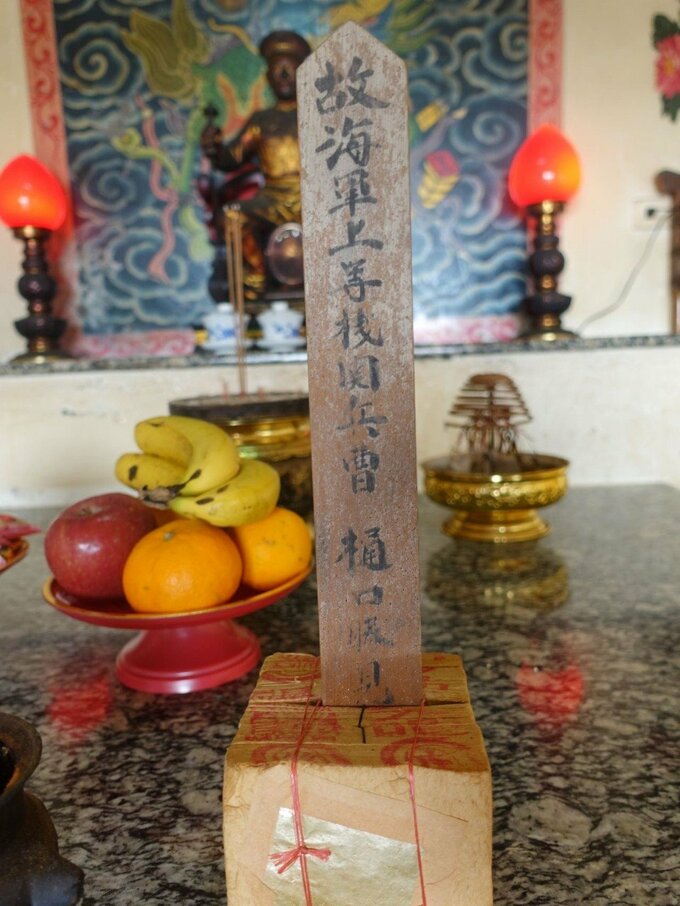 故海軍上等機関兵曹 樋口